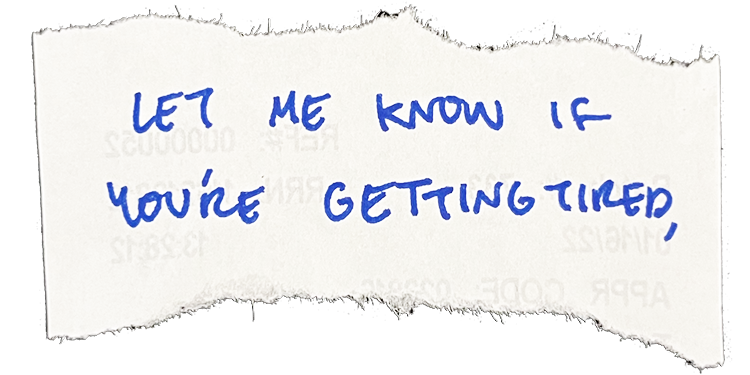 LET ME KNOW IF
YOU'RE GETTING TIRED,
REF#: 00000052
01/16/22 13:28:12
APPR CODE